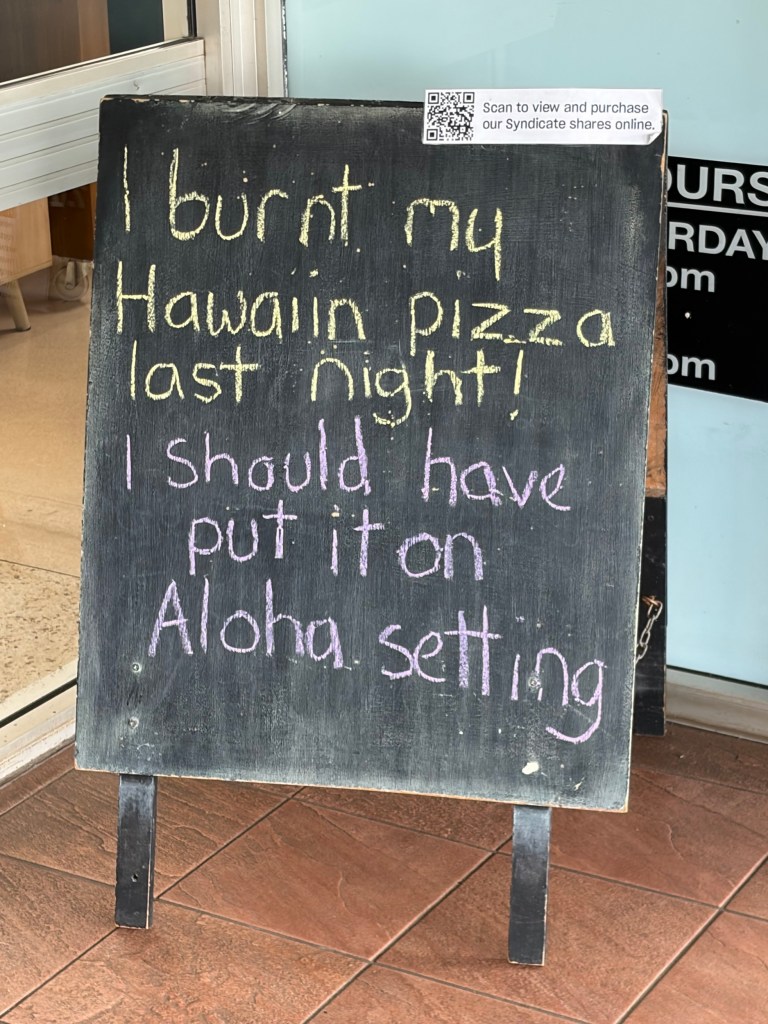 Scan to view and purchase
our Syndicate shares online.
I burnt my
Hawaiin pizza
last night!
I should have
put it on
Aloha setting
OURS
RDAY
pm
pm